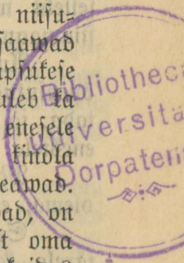 niisu-
saawad
apsukese
tuleb ka
enesele
kindla
eawad.
ad, on
t oma
Bibliotheca
universita
Dorpatens